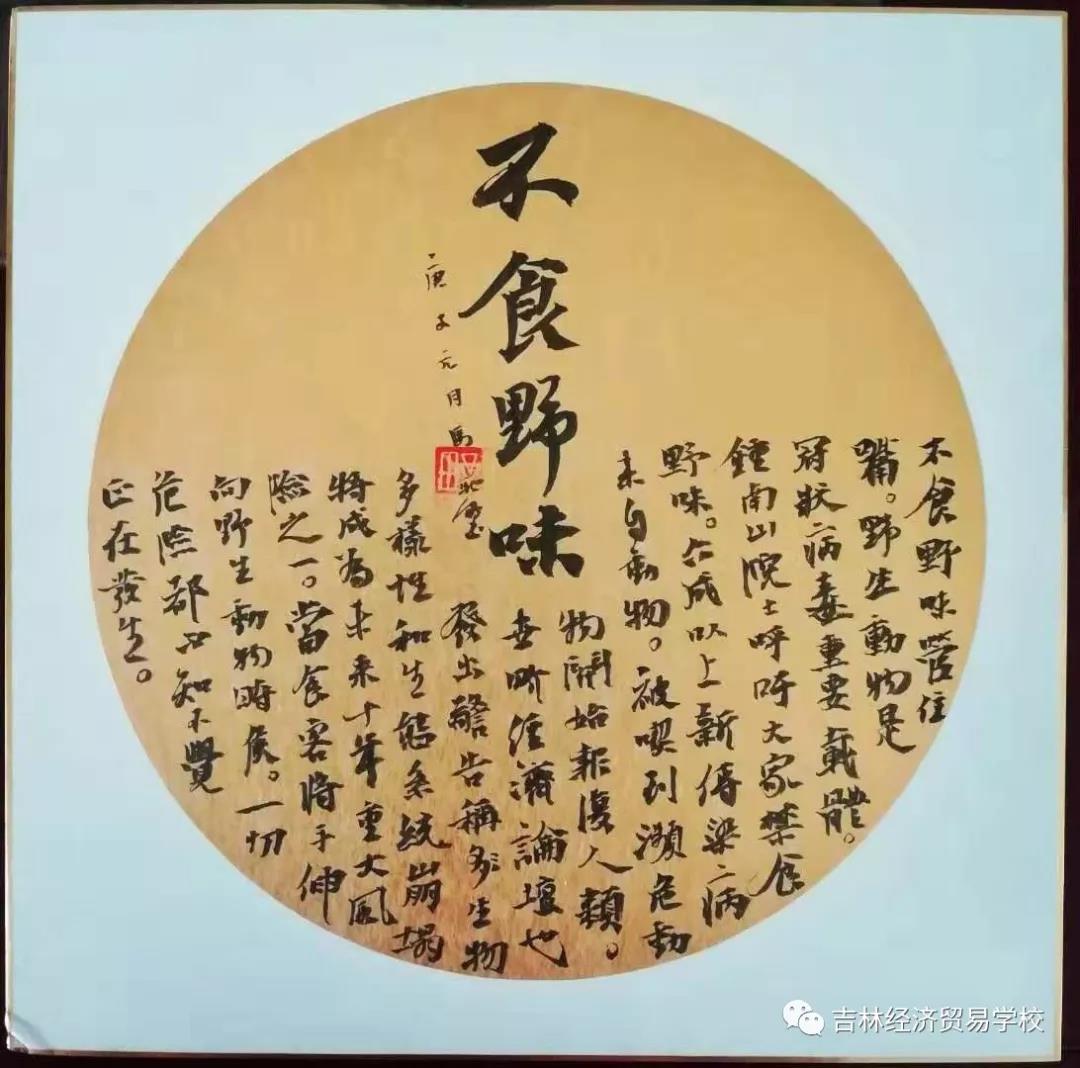 不食野味
庚子元月馬
不食野味管住
嘴。野生動物是
冠狀病毒重要載體。
鍾南山院士呼吁大家禁食
野味。六成以上新傳染病
來自動物。被喫到瀕危動
物開始報復人類。
世界經濟論壇也
發出警告稱多生物
多樣性和生態系統崩塌
將成為未來十年重大風
險之一。當食客將手伸
向野生動物時候。一切
危險都不知不覺
正在發生。
吉林经济贸易学校